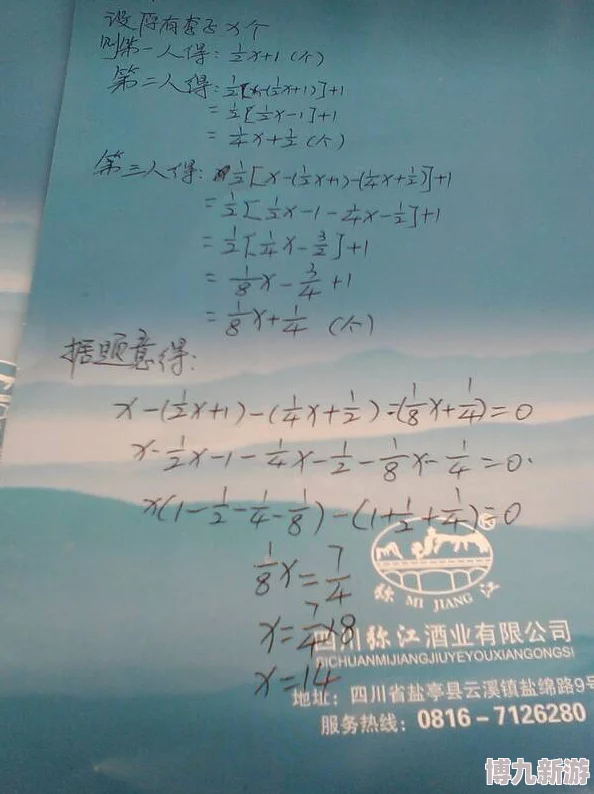 设原有李子x个
则第一人得: 1/2x+1 (个)
第二人得: 1/2[x-(1/2x+1)]+1
= 1/2[1/2x-1]+1
= 1/4x+1/2 (个)
第三人得: 1/2[x-(1/2x+1)-(1/4x+1/2)]+1
= 1/2[1/2x-1-1/4x-1/2]+1
= 1/2[1/4x-3/2]+1
= 1/8x-3/4+1
= 1/8x+1/4 (个)
据题意得:
x-(1/2x+1)-(1/4x+1/2)-(1/8x+1/4)=0
x-1/2x-1-1/4x-1/2-1/8x-1/4=0.
x(1-1/2-1/4-1/8)-(1+1/2+1/4)=0
1/8x=7/4
x=7/4×8
x=14
弥 MI JIANG 江
四川弥江酒业有限公司
SICHUANMIJIANGJIUYEYOUXIANGONGSI
地址: 四川省盐亭县云溪镇盐绵路9号
服务热线: 0816-7126280
博九新游